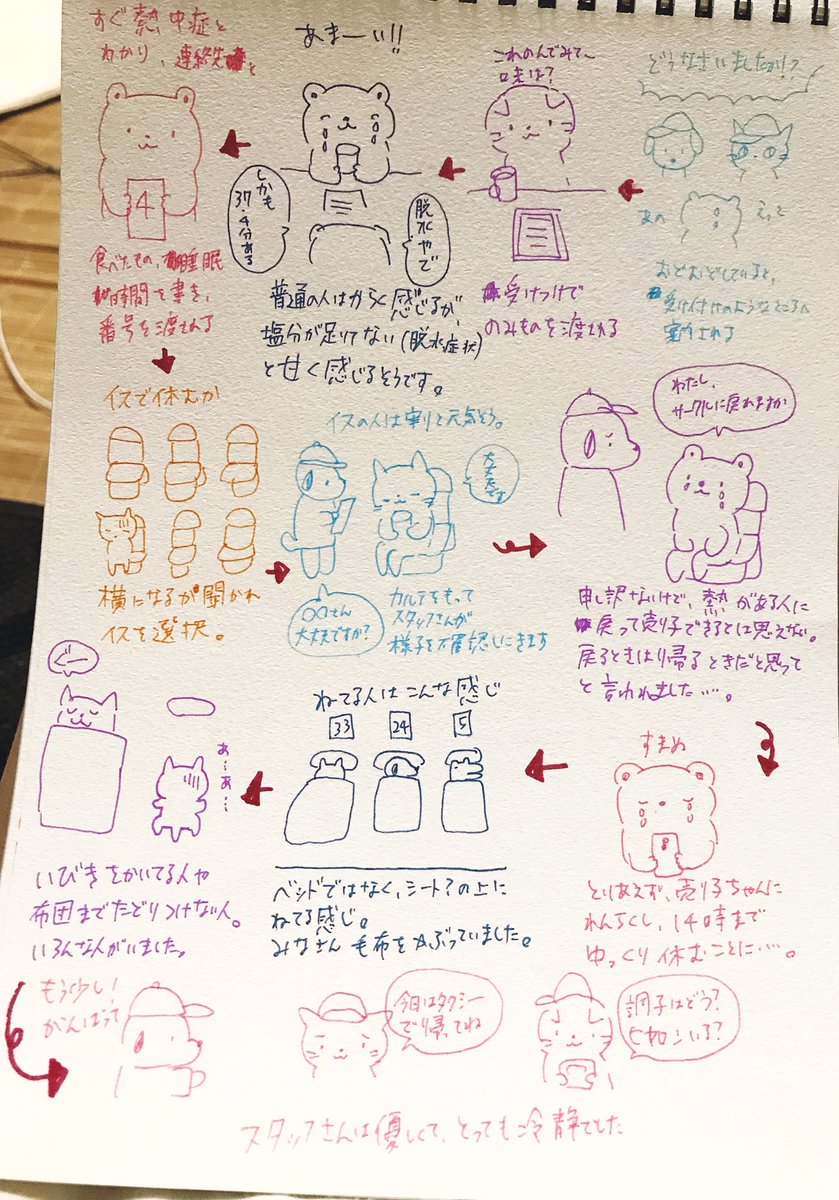 どうなさいましたか!?
あの
えって
おどおどしていると、
受け付けのようなところへ
案内される
これのんでみて〜
味は?
受けつけで
のみものを渡される
あまーい!!
しかも
37.4分ある
脱水やで
普通の人はからく感じるが、
塩分が足りてない(脱水症状)
と甘く感じるそうです。
すぐ熱中症と
わかり、連絡先と
4
食べたもの、睡眠
時間を書き、
番号を渡される
イスで休むか
横になるか聞かれ
イスを選択。
イスの人は割りと元気そう。
大丈夫です
〇〇さん
大丈夫ですか?
カルテをもって
スタッフさんが
様子を確認しにきます
わたし、
サークルに戻れますか
申し訳ないけど、熱がある人に
戻って売り子できるとは思えない。
戻るときはり帰るときだと思って
と言われました…。
すまぬ
とりあえず、売り子ちゃんに
れんらくし、14時まで
ゆっくり休むことに…。
ねてる人はこんな感じ
33
24
5
ベッドではなく、シート?の上に
ねてる感じ。
みなさん毛布をかぶっていました。
ぐー
あ…あ…
いびきをかいてる人や
布団までたどりつけない人。
いろんな人がいました。
もう少し!
がんばって
今日はタクシー
で帰ってね
調子はどう?
スタッフさんは優しくて、とっても冷静でした